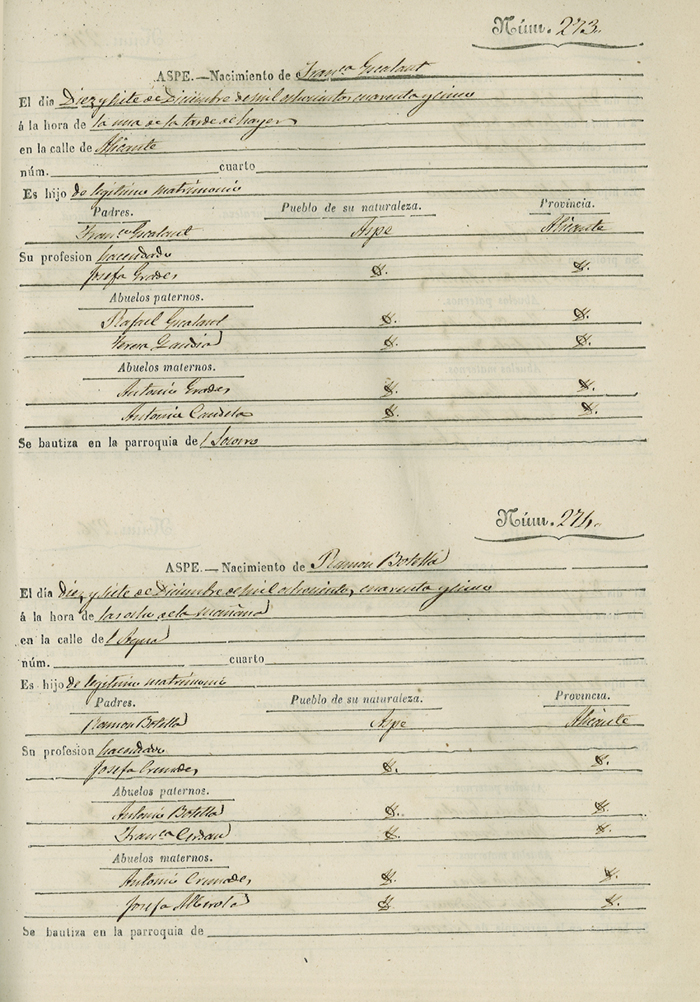 Núm. 273.
ASPE.—Nacimiento de Franca Gualart
El dia Diez y siete de Diciembre de mil ochocientos cuarenta y cinco
á la hora de la una de la tarde de hayer
en la calle de Alicante
núm. cuarto
Es hijo de legitimo matrimonio
Padres. Pueblo de su naturaleza. Provincia.
Franco Aspe Alicante
Su profesion hacendado
Josefa
Abuelos paternos.
Rafael
Teresa
Abuelos maternos.
Antonio
Antonia Candela
Se bautiza en la parroquia del Socorro
Núm. 274.
ASPE.—Nacimiento de Ramon Botella
El dia Diez y siete de Diciembre de mil ochocientos, cuarenta y cinco
á la hora de las ocho de la mañana
en la calle del Agua
núm. cuarto
Es hijo de legitimo matrimonio
Padres. Pueblo de su naturaleza. Provincia.
Ramon Botella Aspe Alicante
Su profesion hacendado
Josefa Cremades
Abuelos paternos.
Antonio Botella
Franca Cerdan
Abuelos maternos.
Antonio Cremades
Josefa Alberola
Se bautiza en la parroquia de